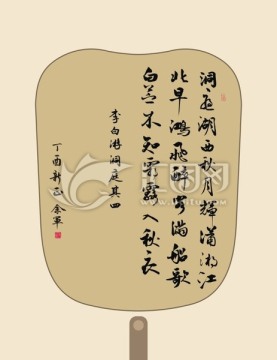 洞庭湖西秋月輝瀟湘江
北早鴻飛醉客滿船歌
白苎不知霜露入秋衣
李白游洞庭其四
丁酉新正余軍